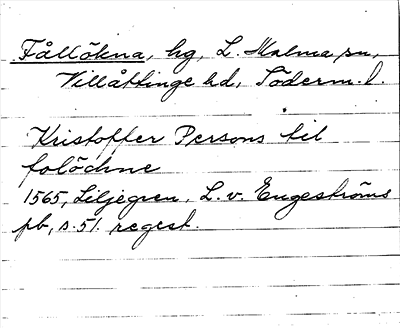 Fållökna, hg, L. Malma sn,
Villåttinge hd, Söderm. l.
Kristoffer Persons til
folöchne
1565, Liljegren, L. v. Engeströms
pb, s. 51. regest.